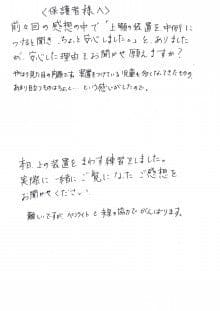 〈保護者様へ〉
前々回の感想の中で「上顎の装置を中学に
つけると聞き、ちょっと安心しました。」と、ありました
が、安心した理由をお聞かせ願えますか？
やはり見た目の問題です。装置をつけている児童も多くなってきたものの
あまり目立つものはちょっと…という感じがしたので。
本日、上の装置をまわす練習をしました。
実際に一緒にご覧になったご感想を
お聞かせください
難しいですが、ペンライトと 協力でがんばります。